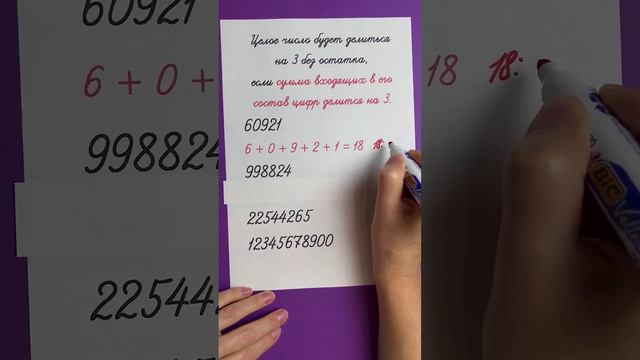 Целое число будет делиться
на 3 без остатка,
если сумма входящих в его
состав цифр делится на 3.
60921
6 + 0 + 9 + 2 + 1 = 18 18:
998824
22544265
12345678900